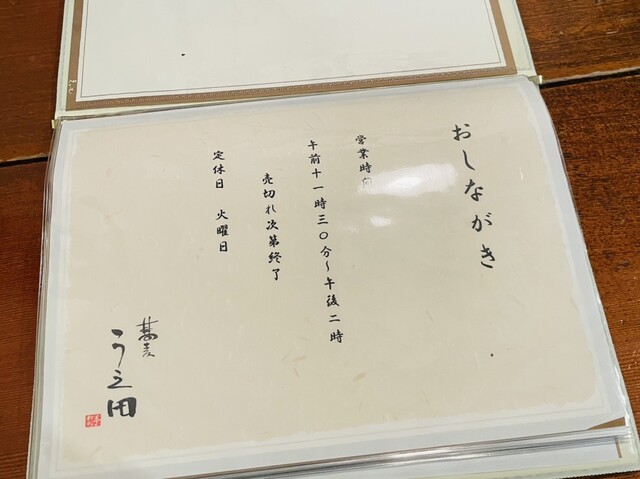 おしながき
営業時間
午前十一時三〇分～午後二時
売切れ次第終了
定休日 火曜日
蕎麦